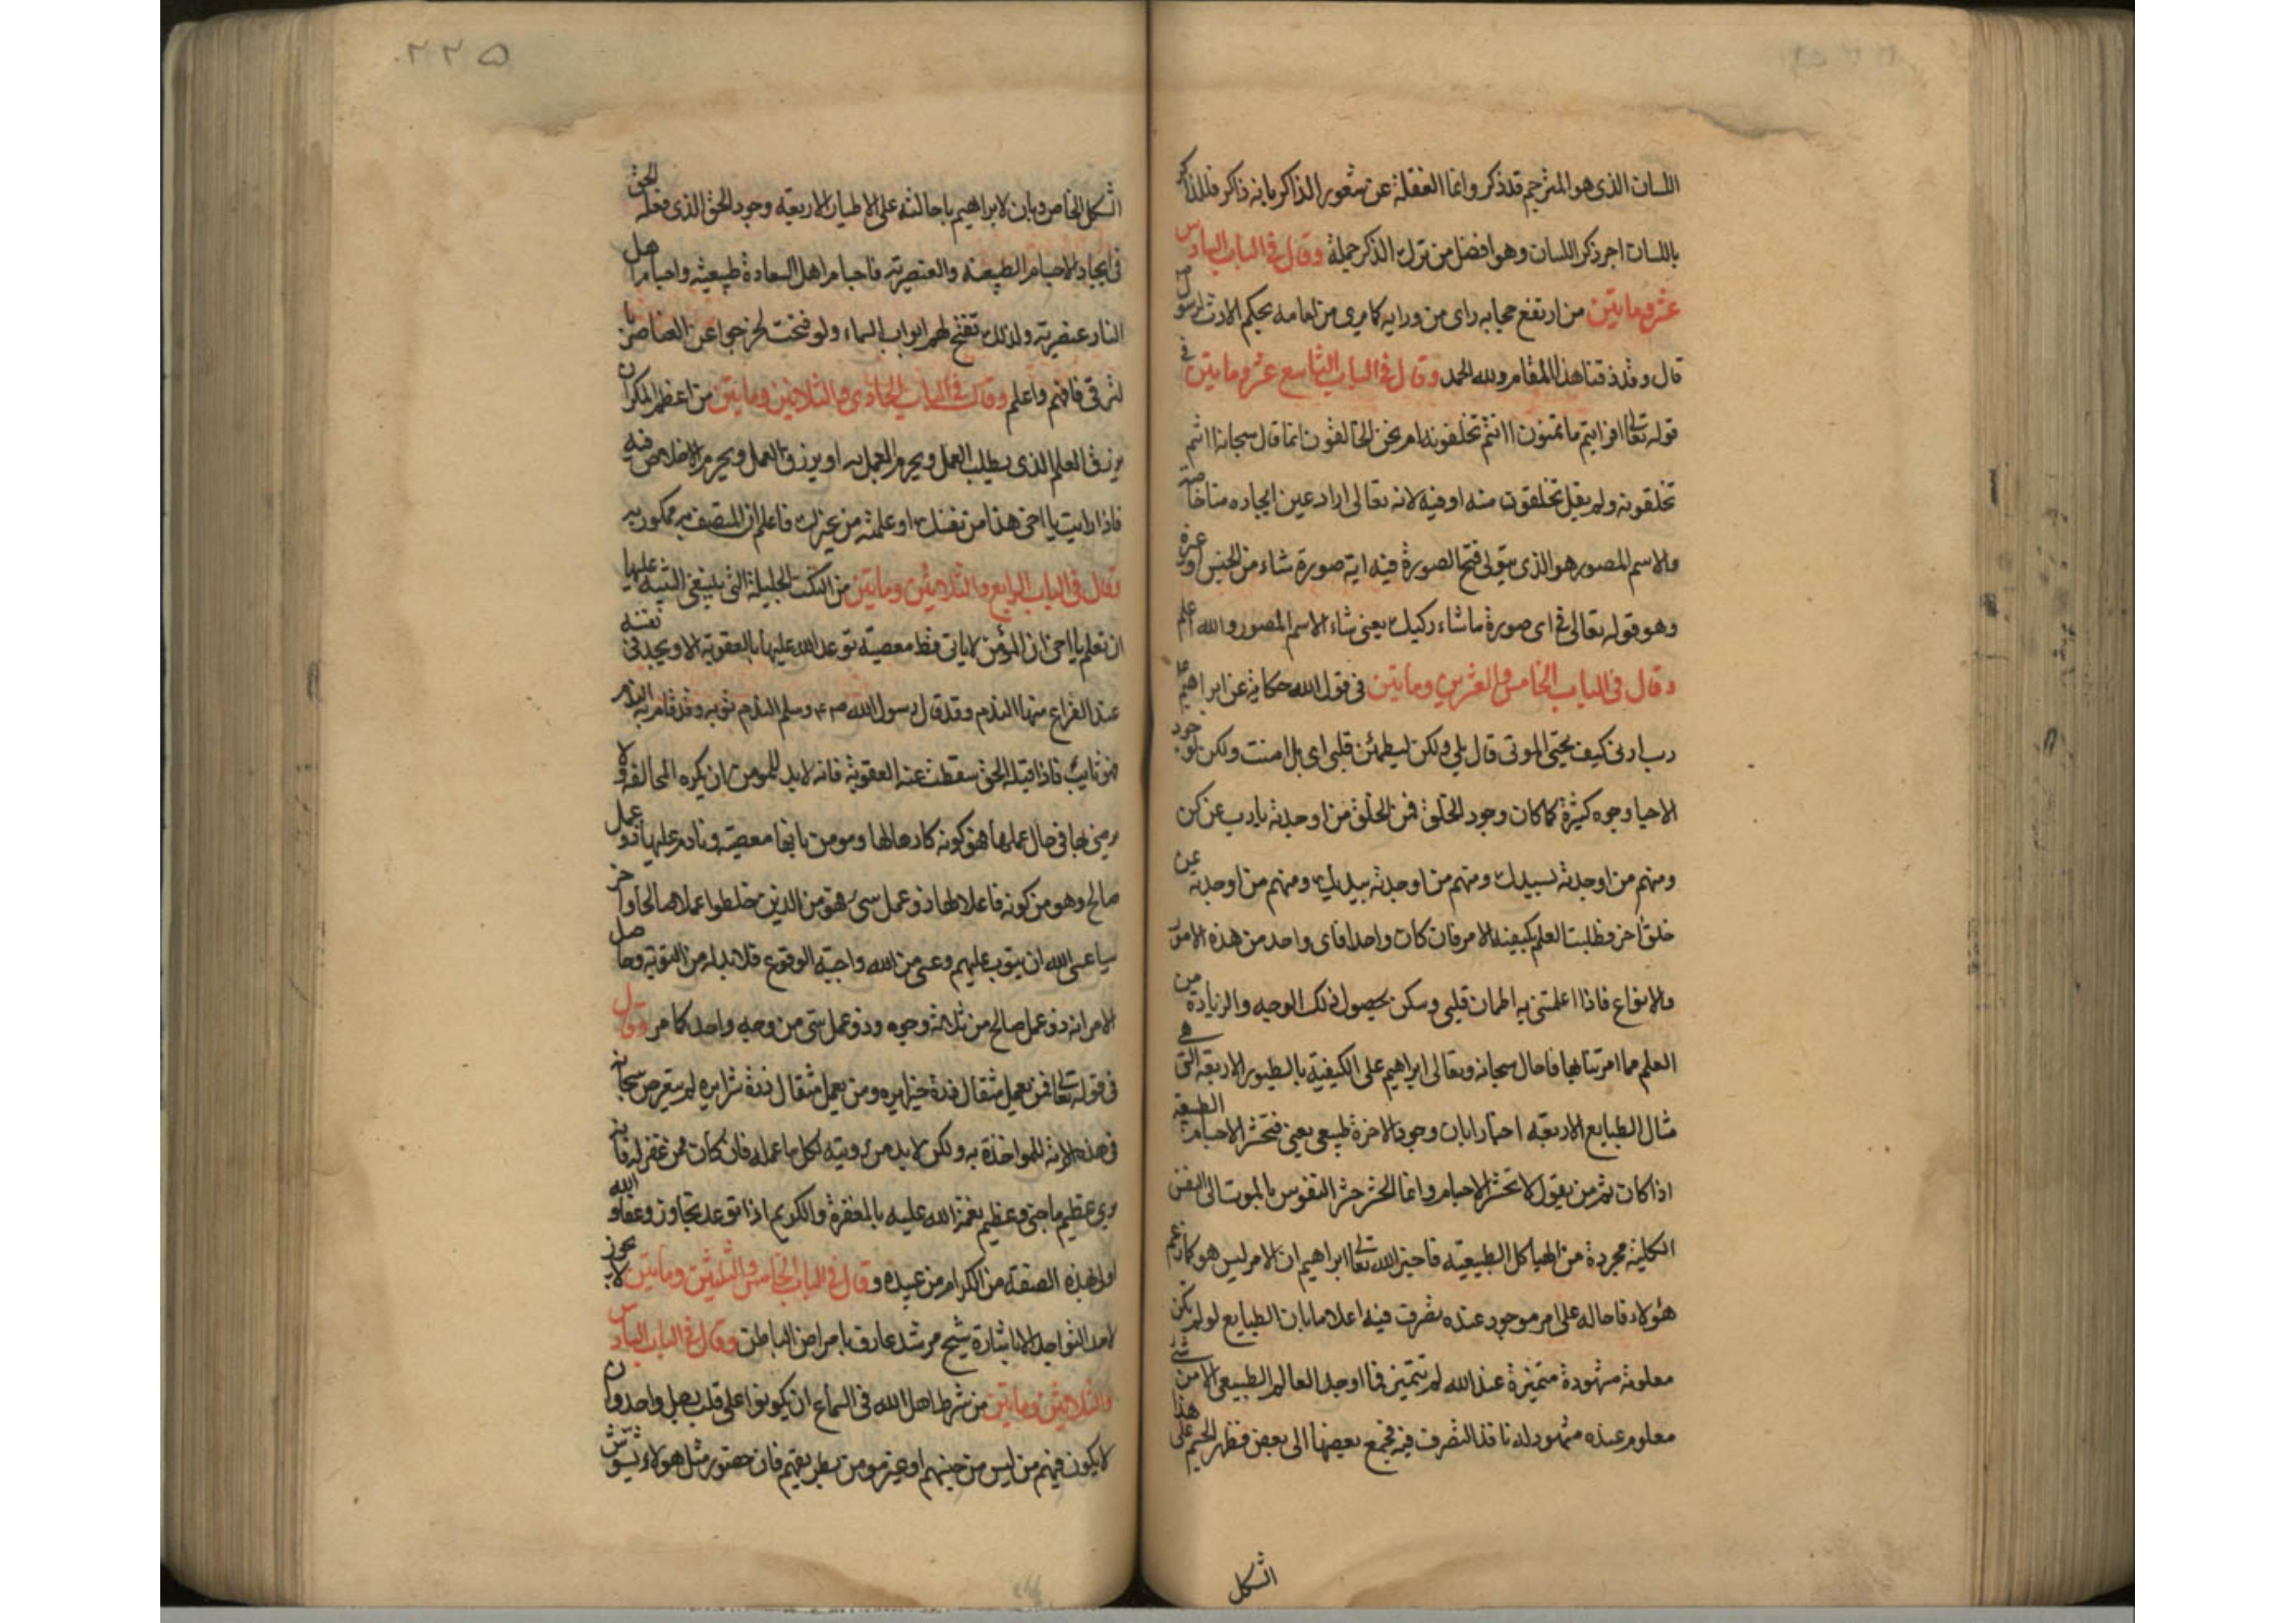 اللسان الذى هو المترجم قد ذكر وانما الغفلة عن شعور الذاكر بانه ذاكر فللذاكر
باللسان اجر ذكر اللسان وهو افضل من ترك الذكر جملة وقال فى الباب السادس
عشر وماٮتين من ارتفع حجابه راى من ورايه كما يرى من امامه بحكم الارث لرسول
قال وقد ذقنا هذا المقام ولله الحمد وقال فى الباب التاسع عشر وماٮتين فى
قوله تعالى افرايتم ما تمنون اانتم تخلقونه ام نحن الخالقون انما قال سبحانه اانتم
تخلقونه ولم يقل تخلقون منه او فيه لانه تعالى اراد عين ايجاده منا خاصة
والاسم المصور هو الذى يتولى فتح الصورة فيه اية صورة شاء من الجنس او غيره
وهو قوله تعالى فى اى صورة ما شاء ركبك يعنى شاء الاسم المصور والله اعلم
وقال فى الباب الخامس والعشرين وماٮتين فى قول الله حكاية عن ابراهيم عل
رب ارنى كيف تحيى الموتى قال بلى ولكن ليطمئن قلبى اى بل امنت ولكن لوجود
الاحيا وجوه كثيرة كما كان وجود الخلق فمن الخلق من اوجدته يا رب عن كن
ومنهم من اوجدته بيدك ومنهم من اوجدته بيديك ومنهم من اوجدته عن
خلق اخر فطلبت العلم بكيفية الامر فان كان واحدا فاى واحد من هذه الامور
والانواع فاذا اعلمتنى به اطمان قلبى وسكن بحصول ذلك الوجه والزيادة من
العلم مما امرتنا بها فاحال سبحانه وتعالى ابراهيم على الكيفية بالطيور الاربعة التى هى
مثال الطبايع الاربعة اخبارا بان وجود الاخرة طبيعى يعنى فتحشر الاجسام الطبيعية
اذا كان ثم من يقول لا تحشر الاجسام وانما الحشر حشر النفوس بالموت الى النفس
الكلية مجردة من الهياكل الطبيعية فاخبر الله تعالى ابراهيم ان الامر ليس هو كما زعم
هؤلاء فاحاله على امر موجود عنده تصرف فيه اعلاما بان الطبايع لو لم تكن
معلومة مشهودة متميزة عند الله لم تتميز فما اوجد العالم الطبيعى الا من شئ
معلوم عنده مشهود له نافذ التصرف فيه فجمع بعضها الى بعض فظهر الجسم على هذا
الشكل
٢٢٥
الشكل الخاص وبان لابراهيم باحالته على الاطيار الاربعة وجود الحق الذى فعله الحق
فى ايجاد الاجسام الطبيعية والعنصرية فاجسام اهل السعادة طبيعية واجسام اهل
النار عنصرية ولذلك تفتح لهم ابواب السماء ولو فتحت لخرجوا عن العناصر با
لترقى فافهم واعلم وقال فى الباب الحادى والثلاثين وماٮتين من اعظم المكر ان
يرزق العلم الذى يطلب العمل ويحرم العمل به او يرزق العمل ويحرم الاخلاص فيه
فاذا رايت يا اخى هذا من نفسك او علمته من غيرك فاعلم ان المتصف به ممكور به
وقال فى الباب الرابع والثلاثين وماٮتين من النكت الجليلة التى ينبغى التنبيه عليها
ان تعلم يا اخى ان المؤمن لا ياتى قط معصية توعد الله عليها بالعقوبة الا ويجد فى نفسه
عند الفراغ منها الندم وقد قال رسول الله ص ع وسلم الندم توبه وقد قام به الندم
فهو تايب فاذا قبله الحق سقطت عنه العقوبة فانه لابد للمومن ان يكره المخالفة ولا
يرضى بها فى حال عملها فهو كونه كارها لها ومومن بانها معصية ونادم عليها ذو عمل
صالح وهو من كونه فاعلا لها ذو عمل سئ فهو من الذين خلطوا عملا صالحا واخر
سيا عسى الله ان يتوب عليهم وعسى من الله واجبة الوقوع فلا بد له من التوبة وحاصل
الامر انه ذو عمل صالح من ثلاثة وجوه وذو عمل سئ من وجه واحد كما مر وقال
فى قوله تعالى فمن يعمل مثقال ذرة خيرا يره ومن يعمل مثقال ذرة شرا يره لم يتعرض سبحانه
فى هذه الاية للمواخذة به ولكن لابد من رويته لكل ما عمله فان كان ممن غفر له فانه
يرى عظيم ما جنى وعظيم نعمة الله عليه بالمغفرة والكريم اذا توعد تجاوز وعفا والله
اولى بهذه الصفة من الكرام من عبيده وقال فى الباب الخامس والثلثين وماٮتين لا يجوز
لاحد التواجد الا باشارة شيخ مرشد عارف بامراض الباطن وقال فى الباب السادس
والثلاثين وماٮتين من شرط اهل الله فى السماع ان يكونوا على قلب رجل واحد وان
لا يكون فيهم من ليس من جنسهم او غير مومن بطريقهم فان حضور مثل هولاء يشوش